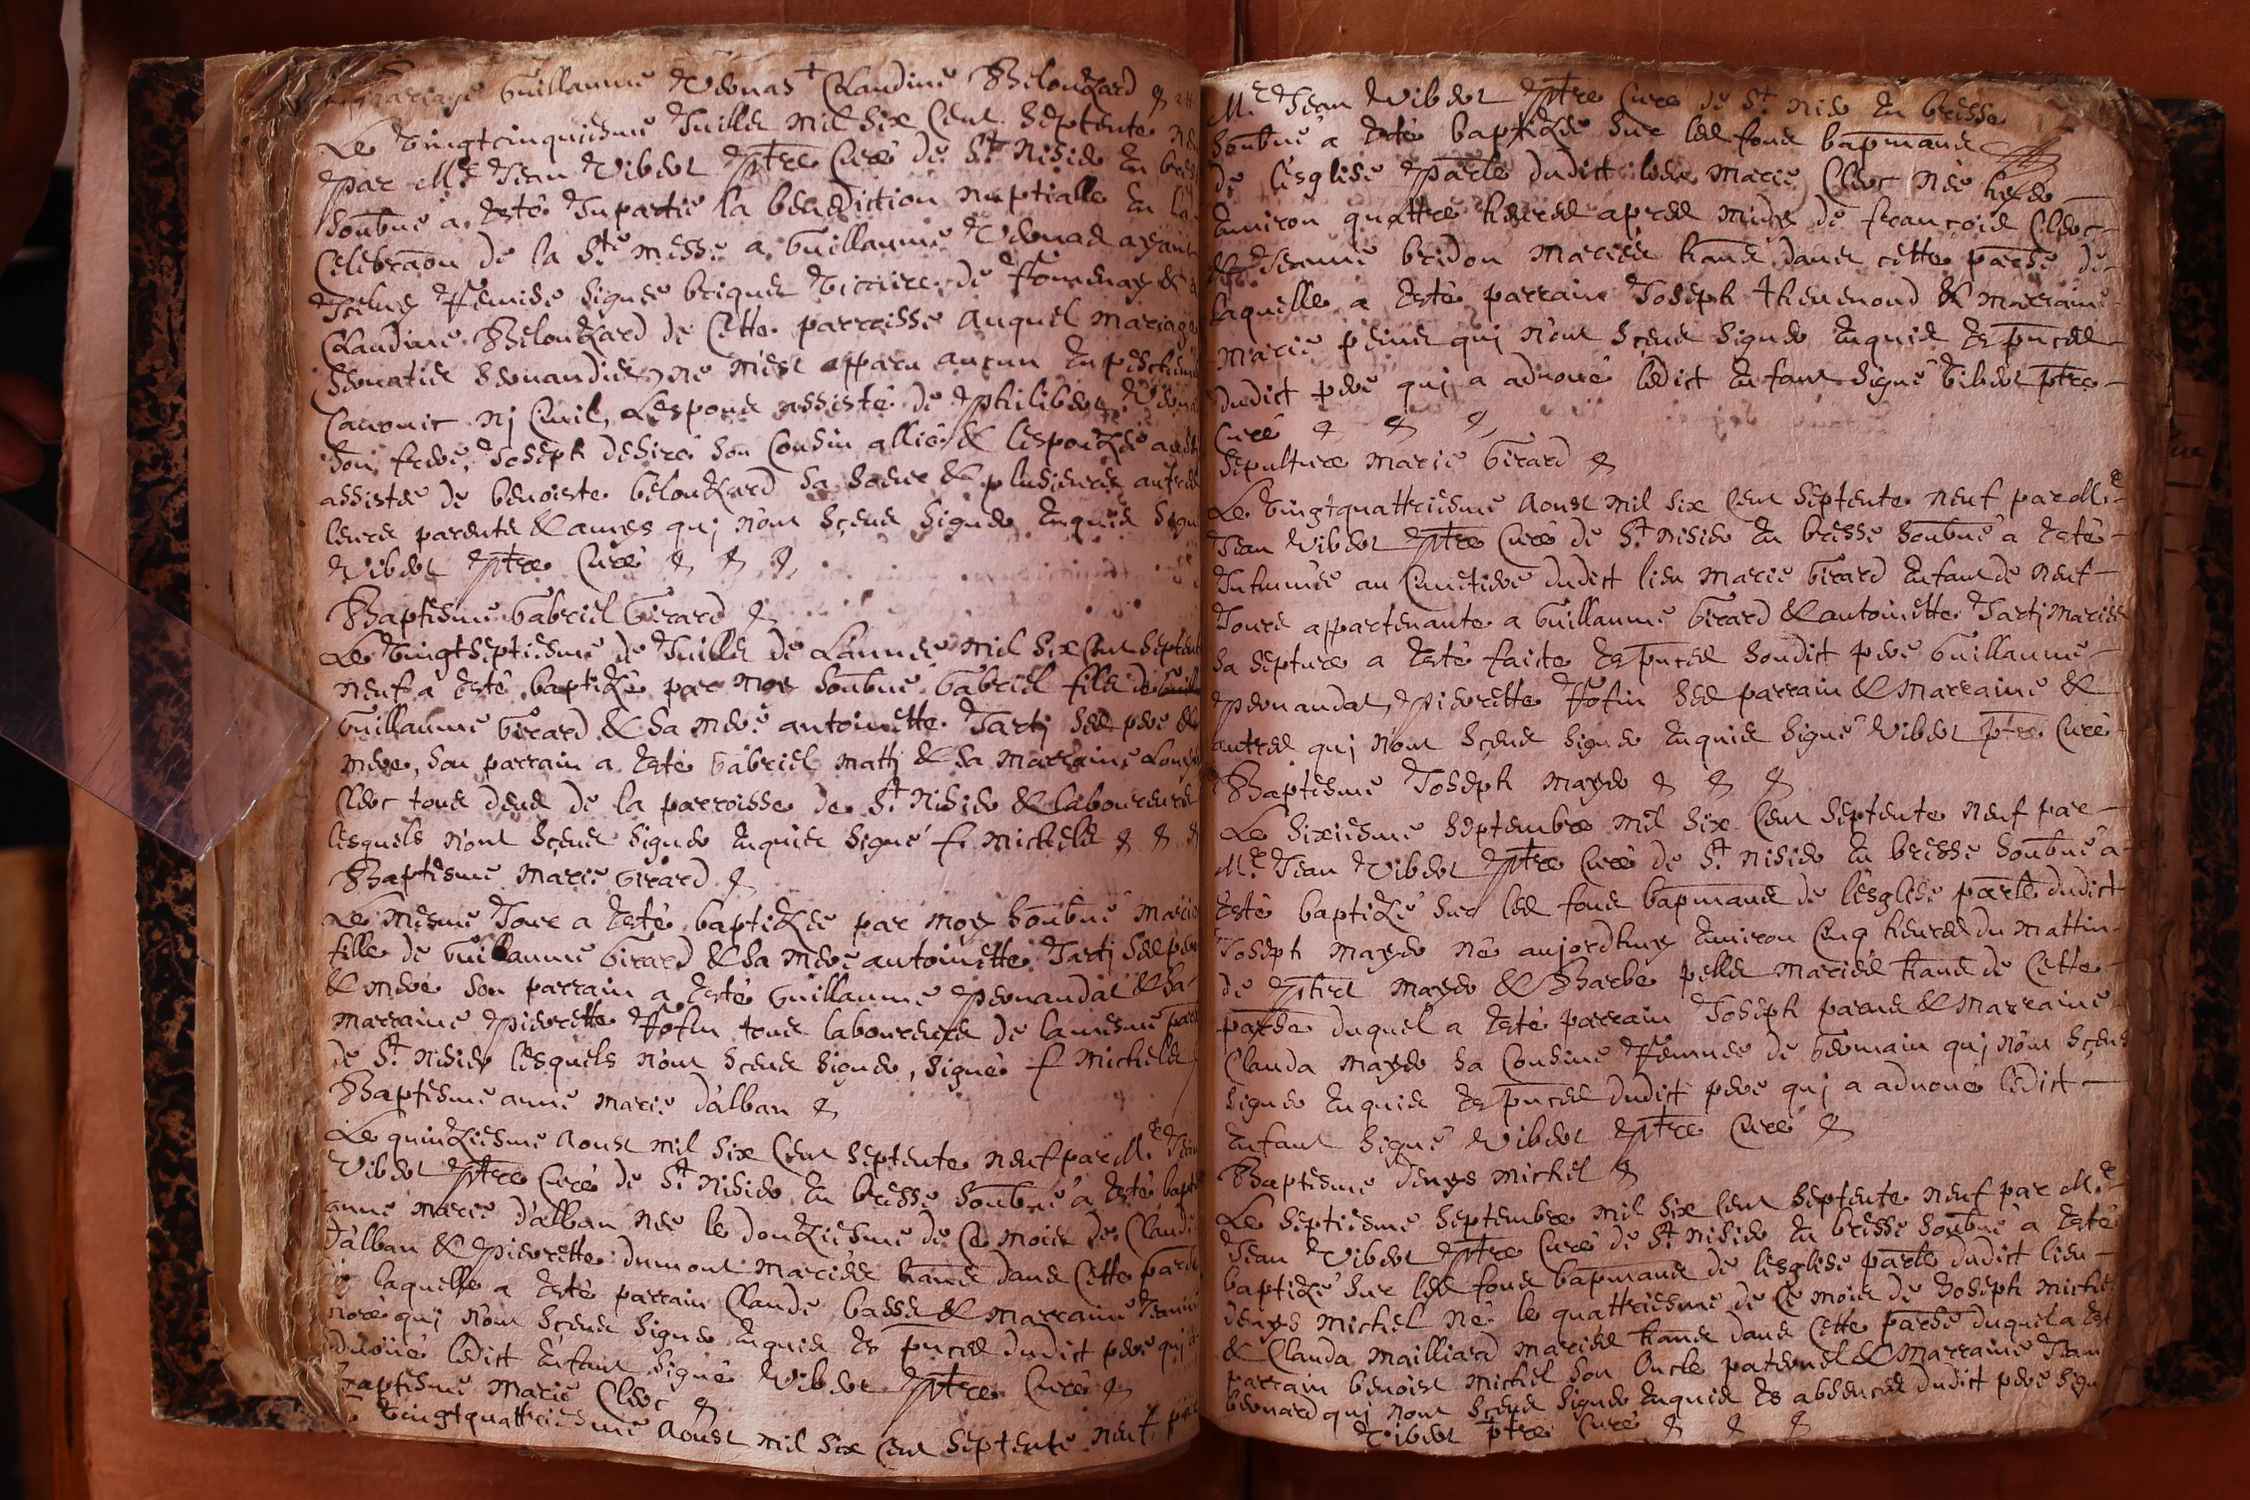 mariage Guillaume Vernas + Claudine Belouzard &
Le vingtcinquiesme Juillet mil six cent septente
par Mre Jean Vibert ptre curé de St Nisier en
soubné a esté Inpartie la benediction nuptialle en la
celebraōn de la Ste messe a Guillaume Vernas ayant
Iceluy remise signée vicaire de &
Claudine Belouzard de cette parroisse auquel mariage
ne m'est apparu aucun enpeschem
canonic nj civil, Lespoux assisté de Philibert
son frere, Joseph desiré son cousin allié & lespouzée
assistée de benoiste belouzard sa soeur & plusieurs autres
leurs parents & amys quj n'ont sçeus signer enquis
Vibert ptre curé & & &
Baptesme Gabriel Girard &
Le vingtseptiesme de Juillet de Lannée mil six cent septent
neuf a esté baptizé par moy soubné Gabriel fils
Guillaume Girard & sa mere antoinette Tartj ses pere &
mere, son parrain a esté Gabriel & sa marraine
Clerc tous deux de la parroisse de St Nisier & laboureurs
lesquels n'ont sçeus signer enquis signé f. michelet & &
Baptesme Marie Girard &
Le mesme Jour a esté baptizée par moy soubné Marie
fille de Guillaume Girard & sa mere antoinette Tartj ses pere
& mere son parrain a esté Guillaume Pernandat & sa
marraine Pierrette tous laboureurs de la mesme
de St Nisier lesquels n'ont sceus signer, signé f michelet
Baptesme anne marie d'alban &
Le quinziesme Aoust mil six cent septente neuf par Mre Jean
Vibert ptre curé de St Nisier en bresse soubné a esté bapt
anne marie d'alban née le douziesme de ce mois de Claude
d'alban & Pierrette dumont mariés dans cette
laquelle a esté parrain Claude & marraine
quj n'ont sçeus signer enquis es pnces dudict pere quj
advoüé ledict enfant signé Vibert ptre curé &
Baptesme Marie Clerc &
vingtquattriesme Aoust mil six cent septente neuf
Mre Jean Vibert ptre curé de St Nisier en bresse
soubné a esté baptizée sur les fons bapmaux
de l'esglise parle dudict lieu Marie Clerc née hyer
environ quattre heures apres midy de françois Clerc
& Jeanne bridon mariés dans cette parsse de
laquelle a esté parrain Joseph thevenond & marraine
marie quj n'ont sçeus signer enquis es pnces
dudict pere quj a advoué ledict enfant signé vibert ptre
curé & & &
Sepulture Marie Girard &
Le vingtquattriesme Aoust mil six cent septente neuf par Mre
Jean Vibert ptre curé de St Nisier en bresse soubné a esté
Inhumée au cimetiere dudict lieu Marie Girard enfant de neuf
Jours appartenante a Guillaume Girard & antoinette Tartj mariés
sa septure a esté faite es pnces sondict pere Guillaume
Pernandat, Pierrette ses parrain & marraine &
autres quj n'ont sçeus signer enquis signé Vibert ptre curé
Baptesme Joseph Mayer & & &
Le sixiesme septembre mil six cent septente neuf par
Mre Jean Vibert ptre curé de St Nisier en bresse soubné a
esté baptizé sur les fons bapmaux de l'esglise parle dudict
Joseph Mayer né aujordhuy environ cinq heures du mattin
de Mayer & Barbe mariés de cette
parsse duquel a esté parrain Joseph & marraine
Clauda Mayer sa cousine femme de germain quj n'ont sçeus
signer enquis es pnces dudict pere quj a advoué ledict
enfant signé Vibert ptre curé &
Baptesme denys michel &
Le septiesme septembre mil six cent septente neuf par Mre
Jean Vibert ptre curé de St Nisier en bresse soubné a esté
baptizé sur les fons bapmaux de lesglise parle dudict lieu
denys michel né le quattriesme de ce mois de Joseph miche
& Clauda Mailliard mariés dans cette parsse duquel a est
parrain benoist michel son oncle paternel & marraine Jean
bernard quj n'ont sçeus signer enquis es absences dudict pere sign
vibert ptre curé & & &